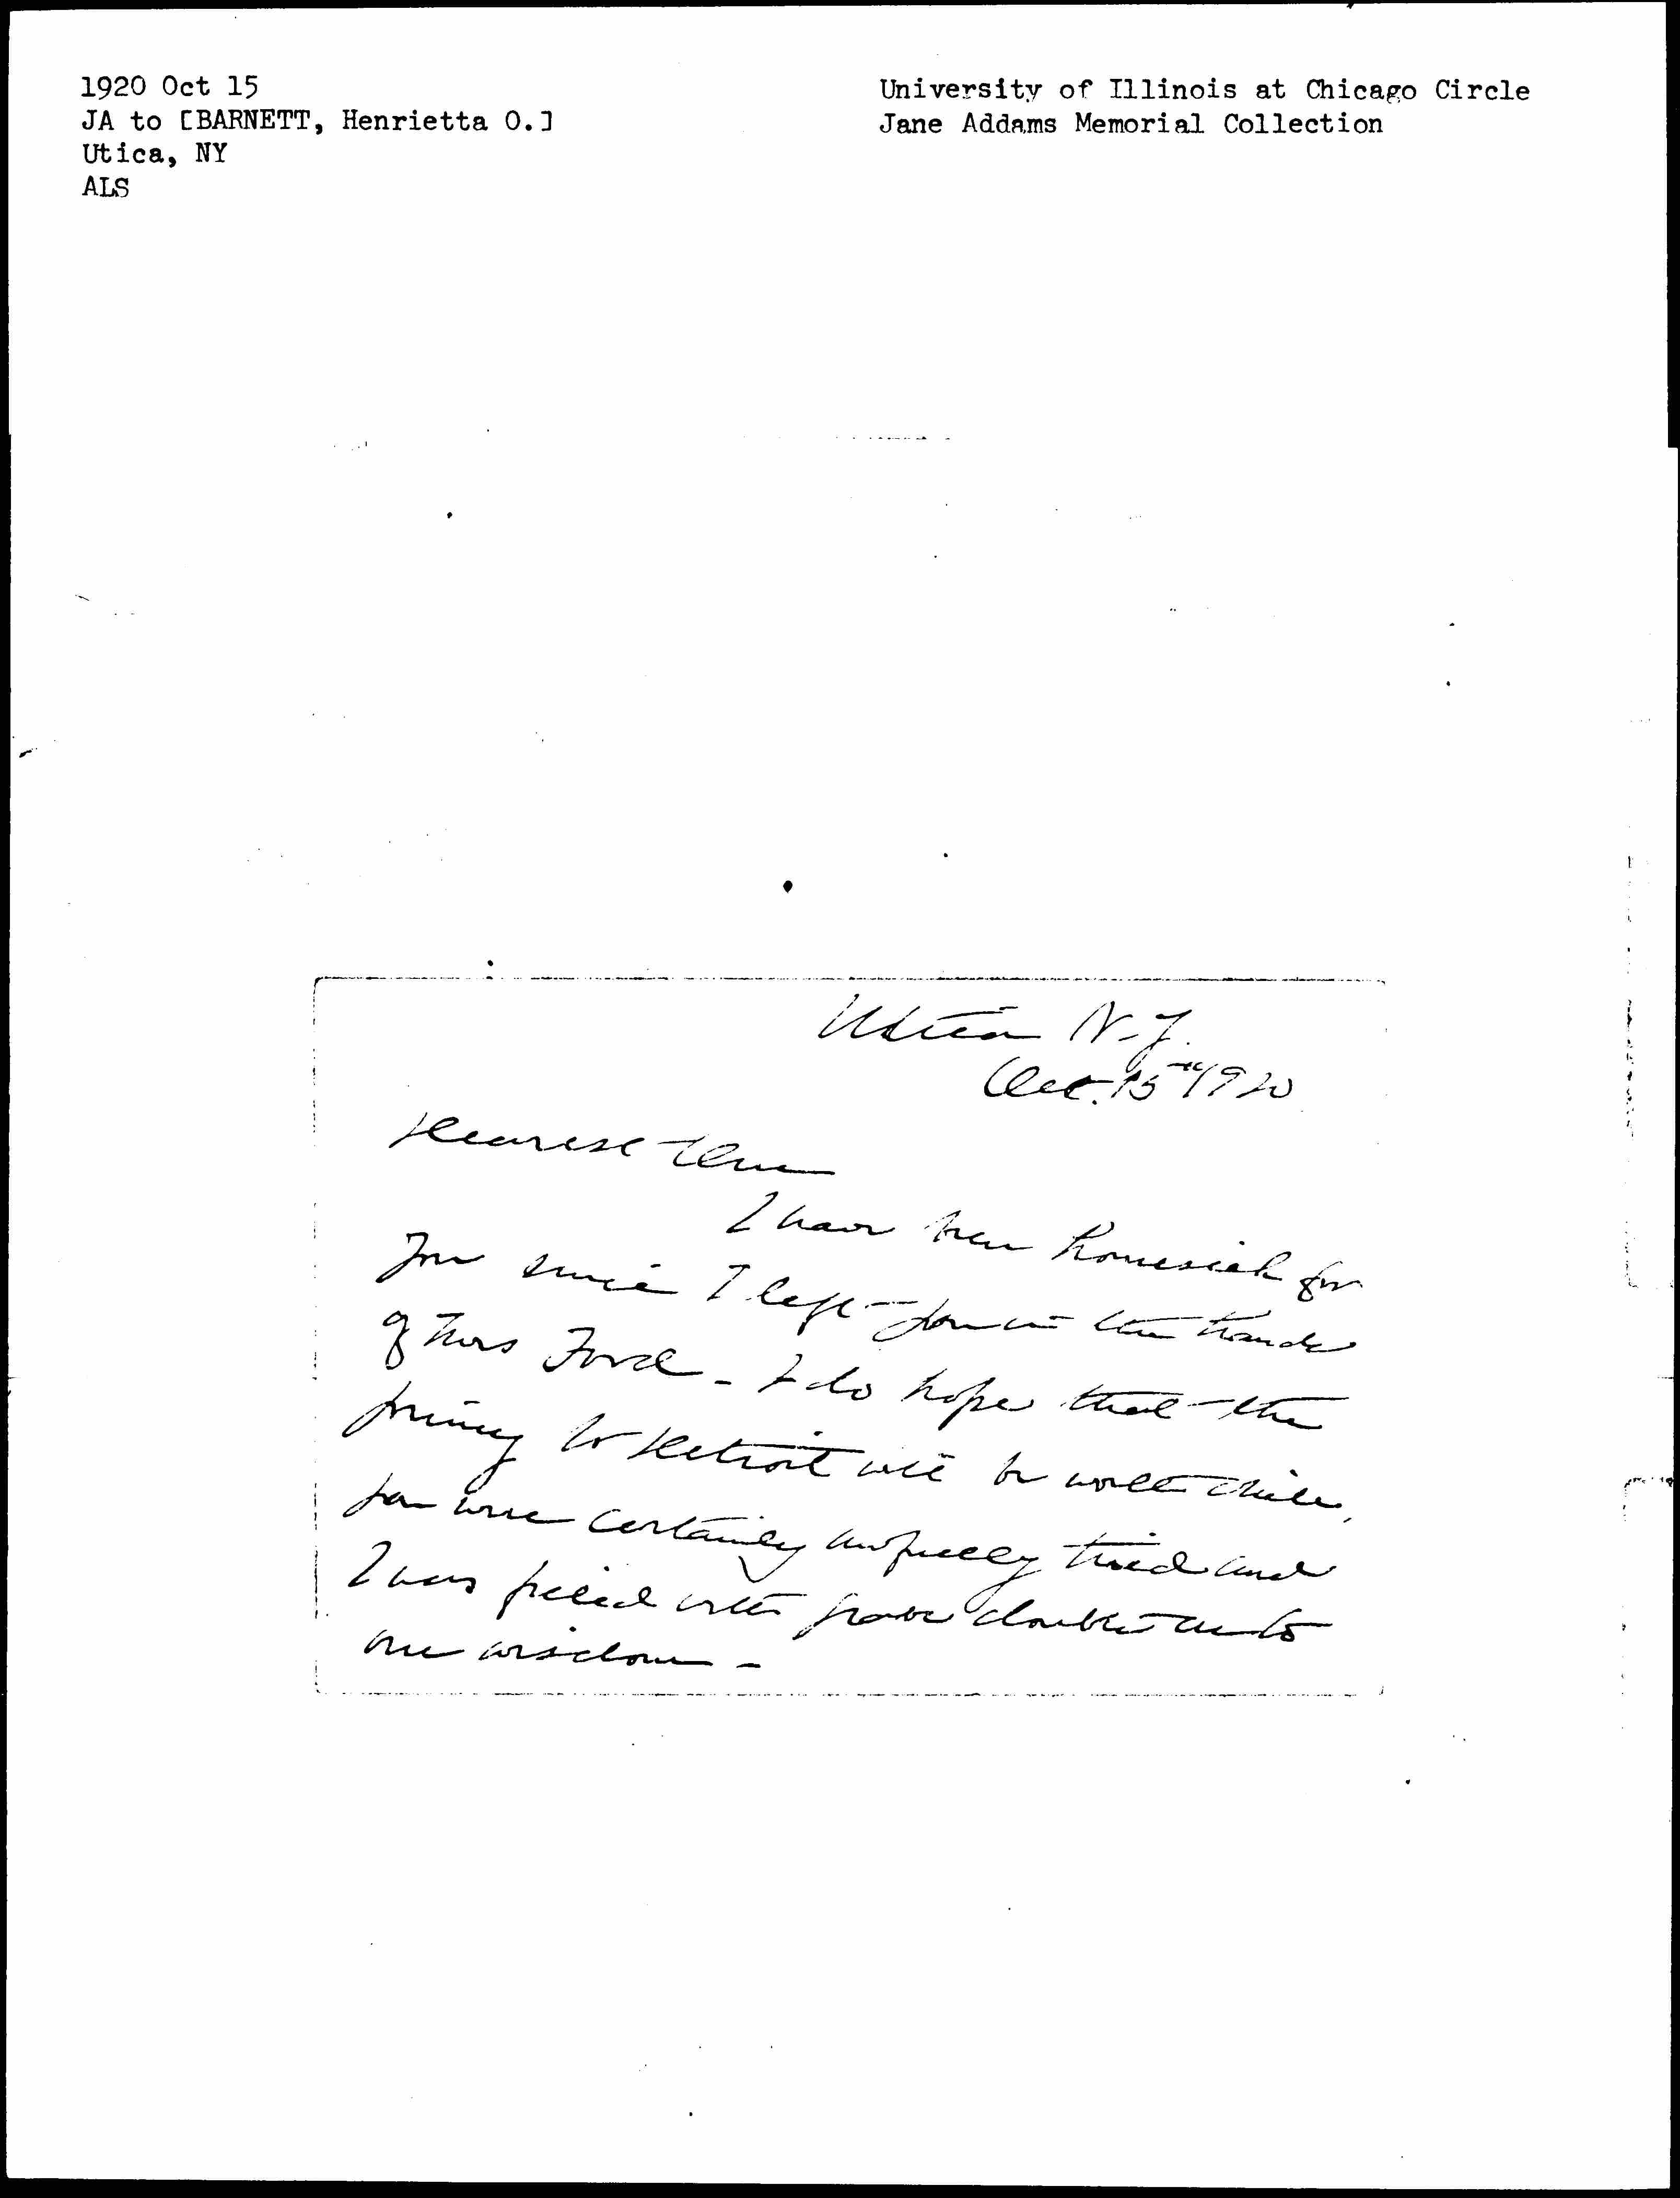 1920 Oct 15
JA to [BARNETT, Henrietta O.]
Utica, NY
ALS
University of Illinois at Chicago Circle
Jane Addams Memorial Collection
Utica N.Y.
Oct. 15th 1920
Dearest
I have been homesick for
you since I left you in the hands
of Mrs Ford - I do hope that the
journey to Detroit will be worth while,
you were certainly awfully tired and
I was filled with grave doubts as to
our wisdom -